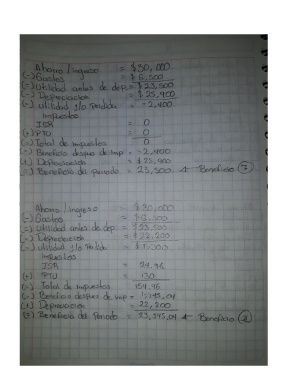 Ahorro / ingreso = $30,000
(-) Gastos = $6,500
(=) Utilidad antes de dep = $23,500
(-) Depreciación = $25,900
(=) Utilidad y/o Perdida = -2,400
impuestos
ISR = 0
(+) PTU = 0
(=) Total de impuestos = 0
(=) Beneficio despues de imp = -2,400
(+) Depreciación = $25,900
(=) Beneficio del periodo = 23,500 Beneficio 1
Ahorro / ingreso = $30,000
(-) Gastos = $6,500
(=) Utilidad antes de dep = $23,500
(-) Depreciación = $22,200
(=) Utilidad y/o Perdida = $1,300
impuestos
ISR = 24.96
(+) PTU = 130
(=) Total de impuestos = 154.96
(=) Beneficio despues de imp = 1,145.04
(+) Depreciación = 22,200
(=) Beneficio del Periodo = 23,345.04 Beneficio 2